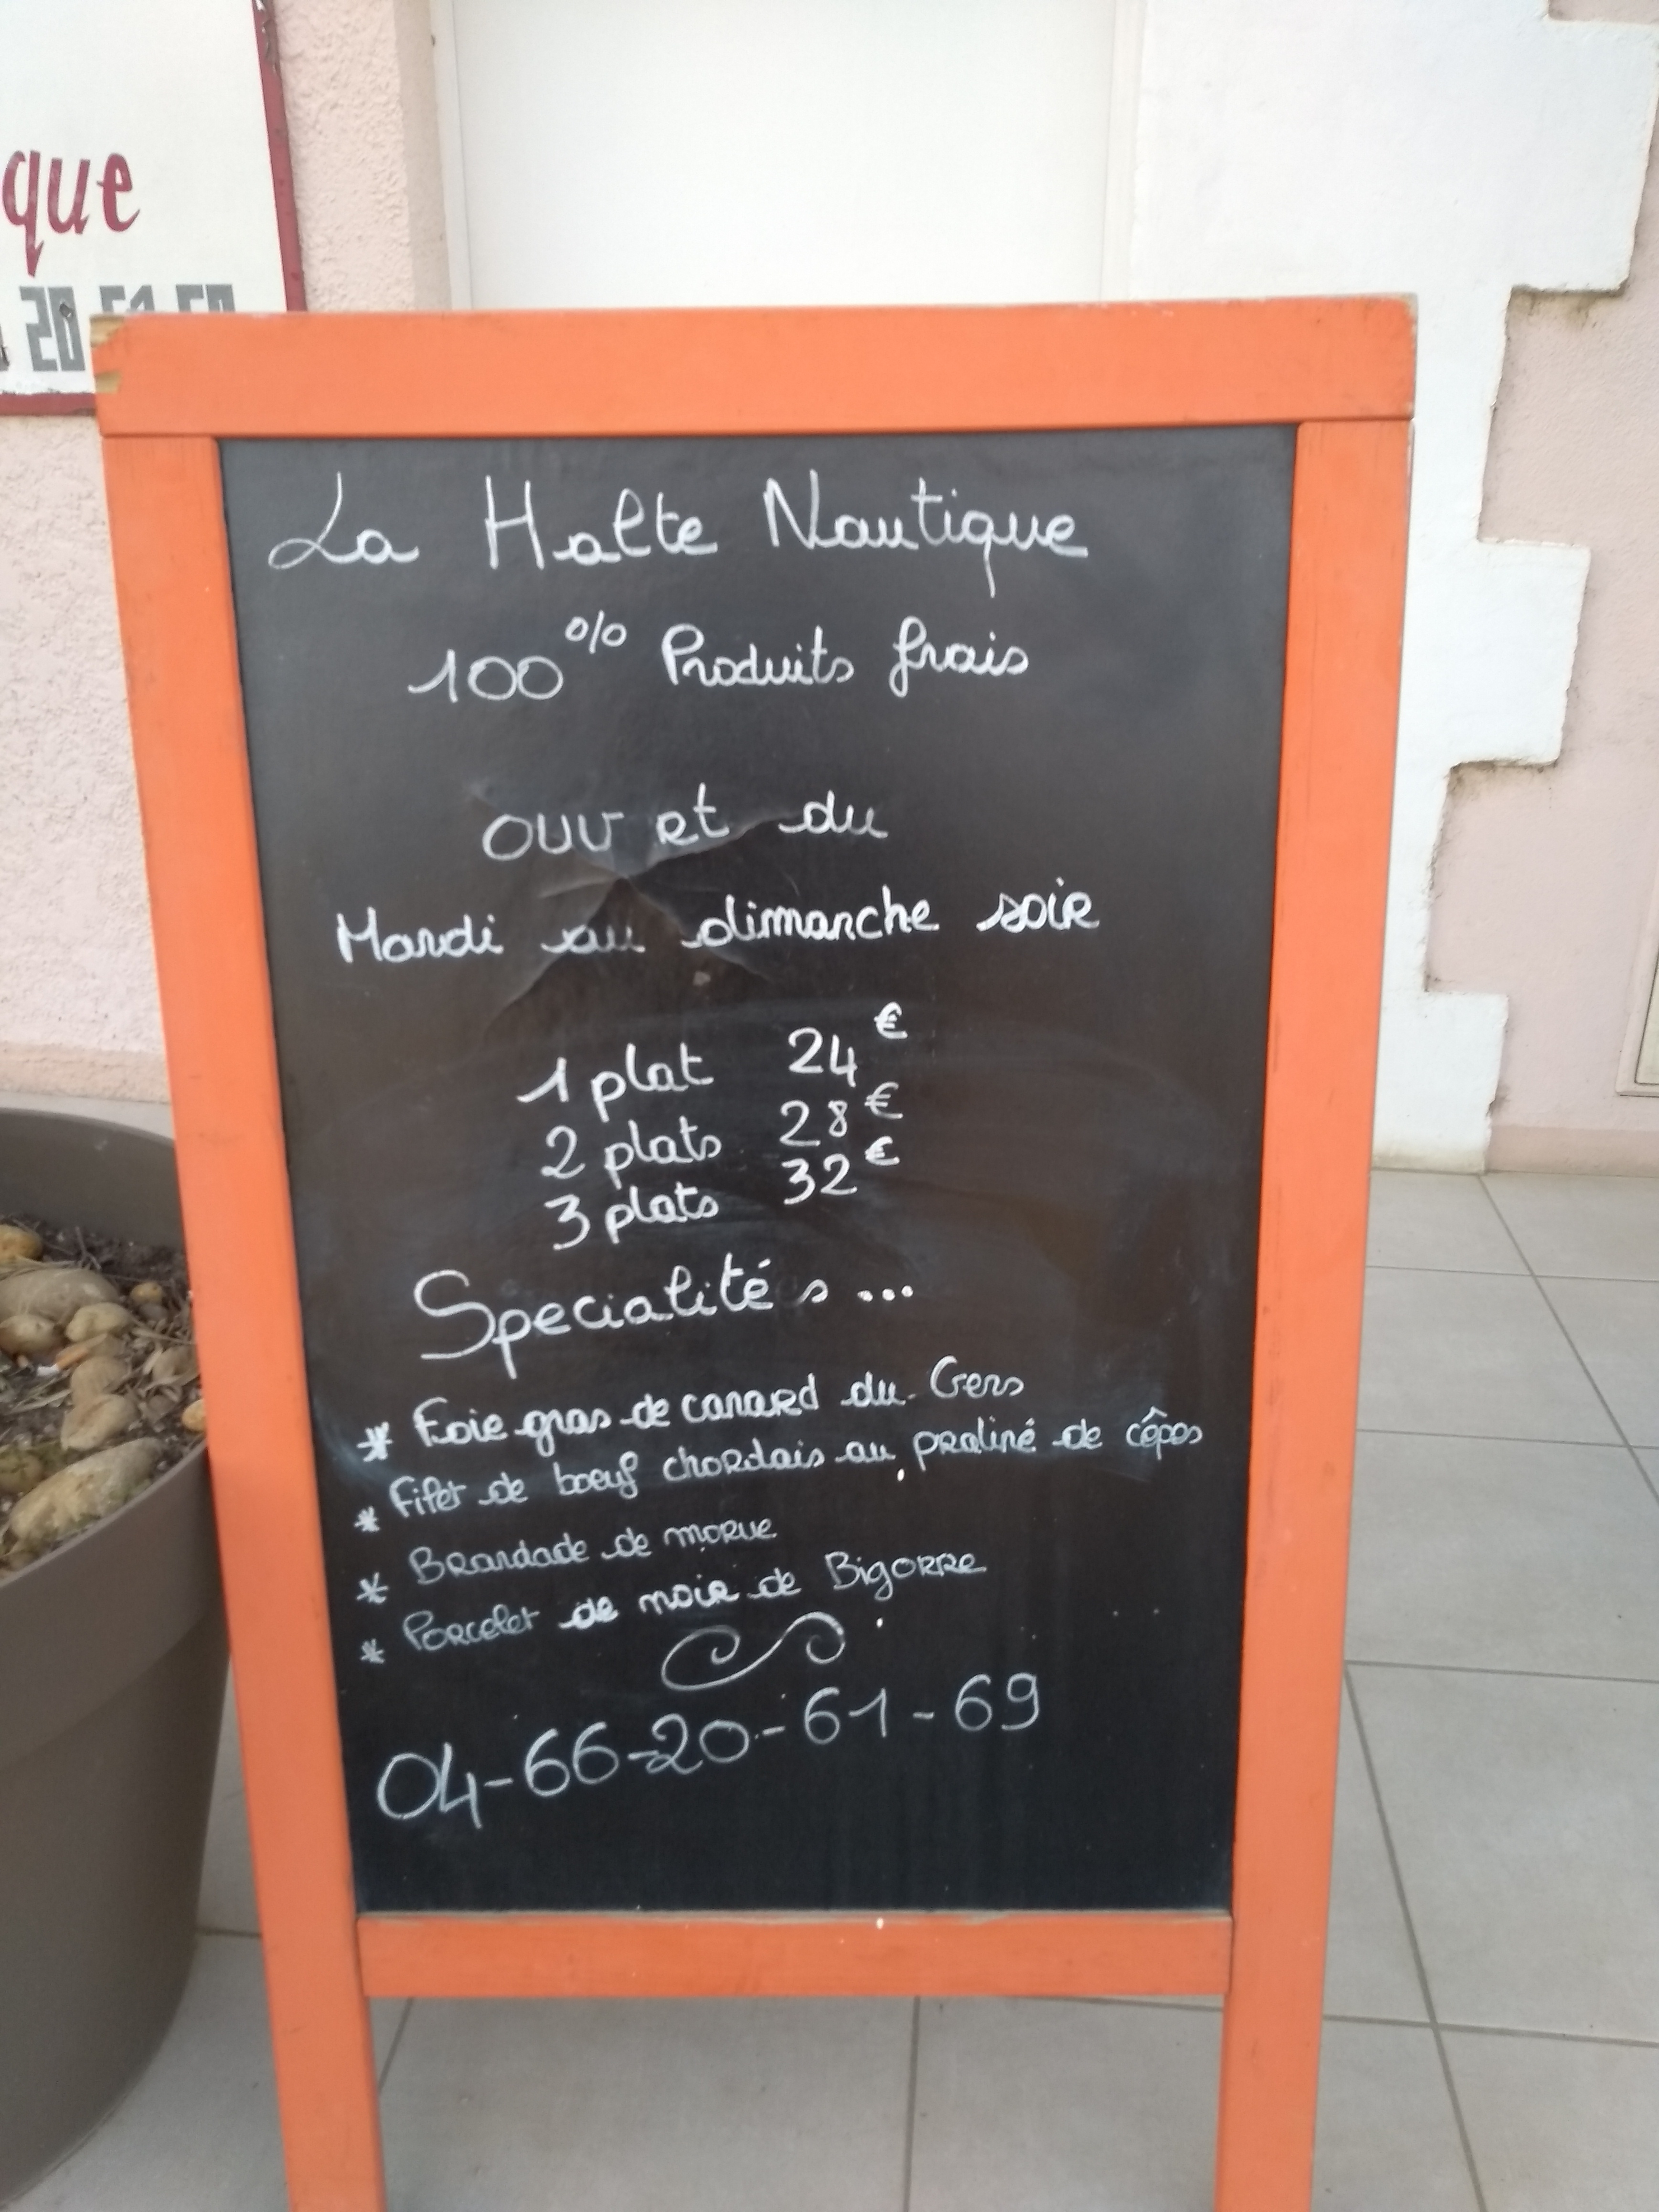 que
20
La Halte Nautique
100% Produits frais
ouv et du
Mardi au dimanche soir
1 plat 24€
2 plats 28€
3 plats 32€
Specialités...
* Foie gras de canard du Gers
* Filet de boeuf chordais au praliné de cêpes
* Brandade de morue
* Porcelet de noir de Bigorre
04-66-20-61-69